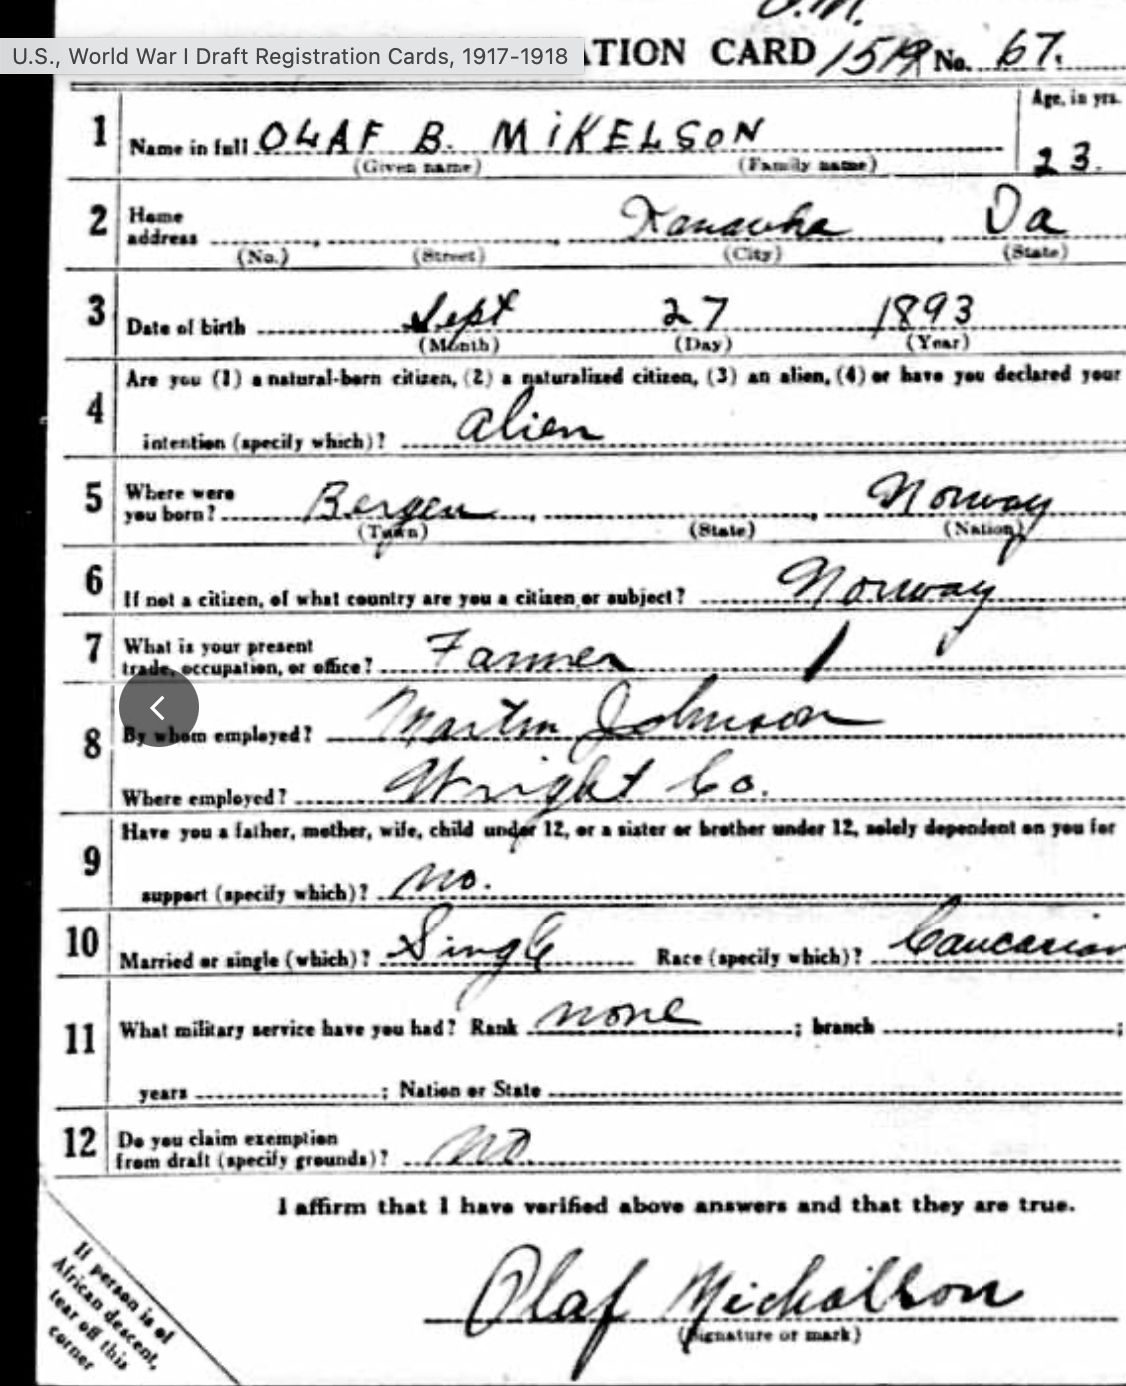 D.M.
U.S., World War I Draft Registration Cards, 1917-1918
ATION CARD 1519 No. 67.
1 Name in full OLAF B. MIKELSON Age, in yrs.
(Given name) (Family name) 23.
2 Home address Kanawha Ia
(No.) (Street) (City) (State)
3 Date of birth Sept 27 1893
(Month) (Day) (Year)
Are you (1) a natural-born citizen, (2) a naturalized citizen, (3) an alien, (4) or have you declared your
4 intention (specify which)? alien
5 Where were you born? Bergen Norway
(Town) (State) (Nation)
6 If not a citizen, of what country are you a citizen or subject? Norway
7 What is your present
trade, occupation, or office? Farmer
8 By whom employed? Martin Johnson
Where employed? Wright Co.
Have you a father, mother, wife, child under 12, or a sister or brother under 12, solely dependent on you for
9 support (specify which)? No.
10 Married or single (which)? Single Race (specify which)? Caucasian
11 What military service have you had? Rank none ; branch ;
years ; Nation or State
12 Do you claim exemption
from draft (specify grounds)? No
I affirm that I have verified above answers and that they are true.
Olaf Michallson
(Signature or mark)
If person is of
African descent,
tear off this
corner